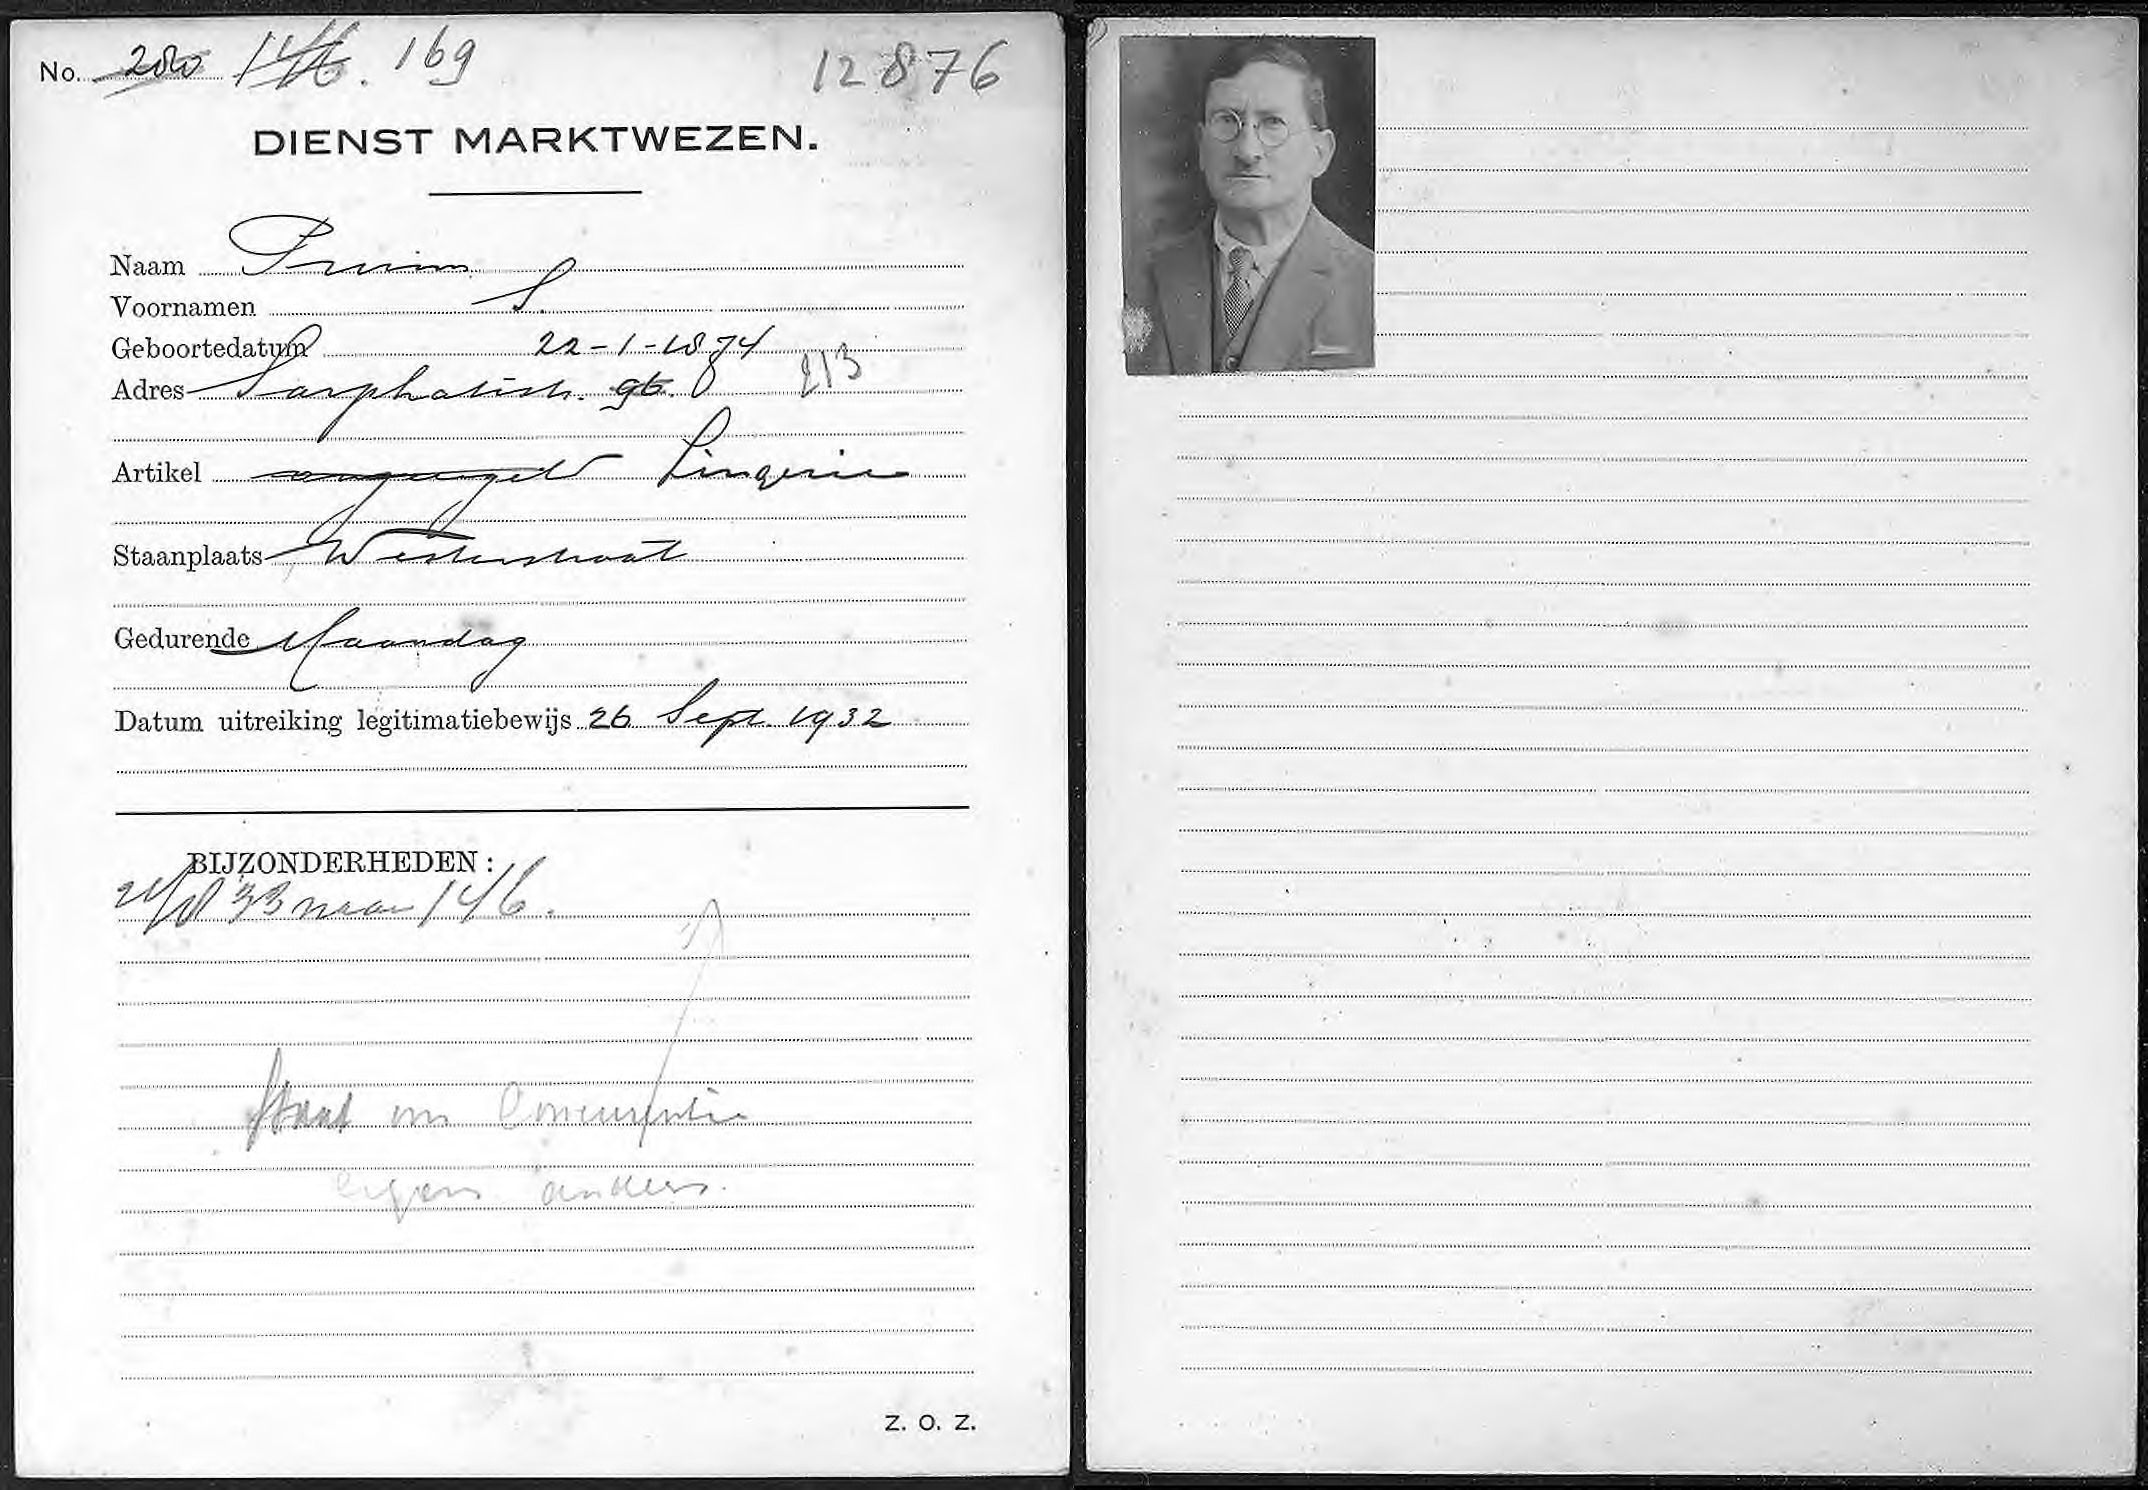 No. 200 146. 169 12876
DIENST MARKTWEZEN.
Naam Pruim
Voornamen S.
Geboortedatum 22-1-1874
Adres Sarphatistr. 96. 213
Artikel Lingerie
Staanplaats Westerstraat
Gedurende Maandag
Datum uitreiking legitimatiebewijs 26 Sept. 1932
BIJZONDERHEDEN:
33 naar 146.
Staat om Concurrentie
ergens anders.
Z. O. Z.